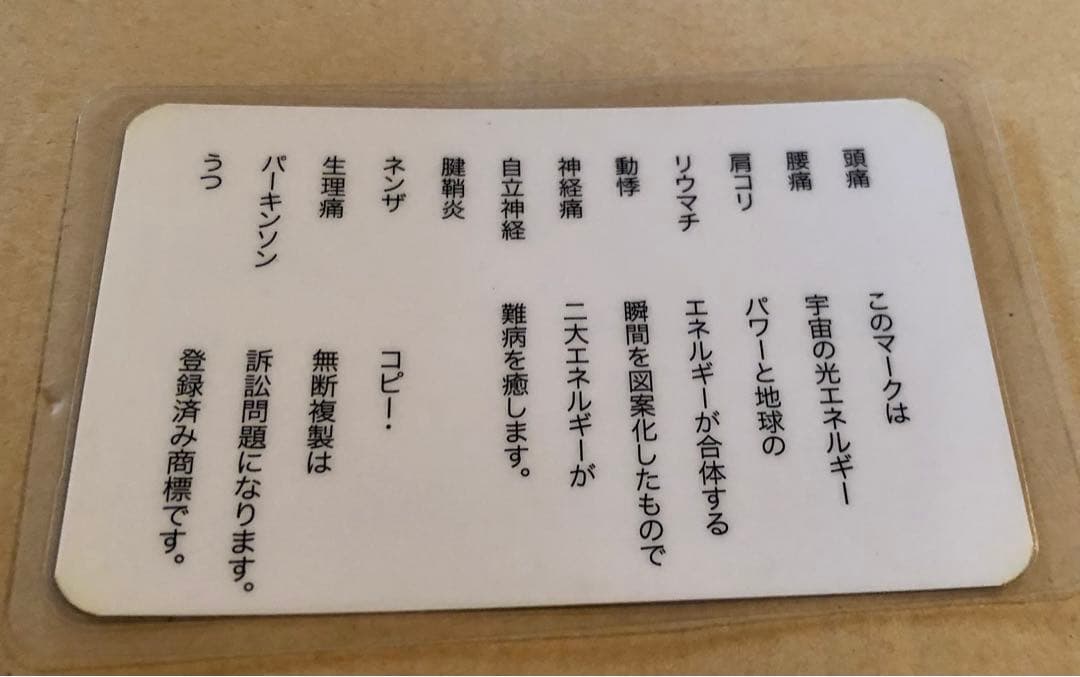 頭痛
腰痛
肩コリ
リウマチ
動悸
神経痛
自立神経
腱鞘炎
ネンザ
生理痛
パーキンソン
うつ
このマークは
宇宙の光エネルギー
パワーと地球の
エネルギーが合体する
瞬間を図案化したもので
二大エネルギーが
難病を癒します。
コピー・
無断複製は
訴訟問題になります。
登録済み商標です。